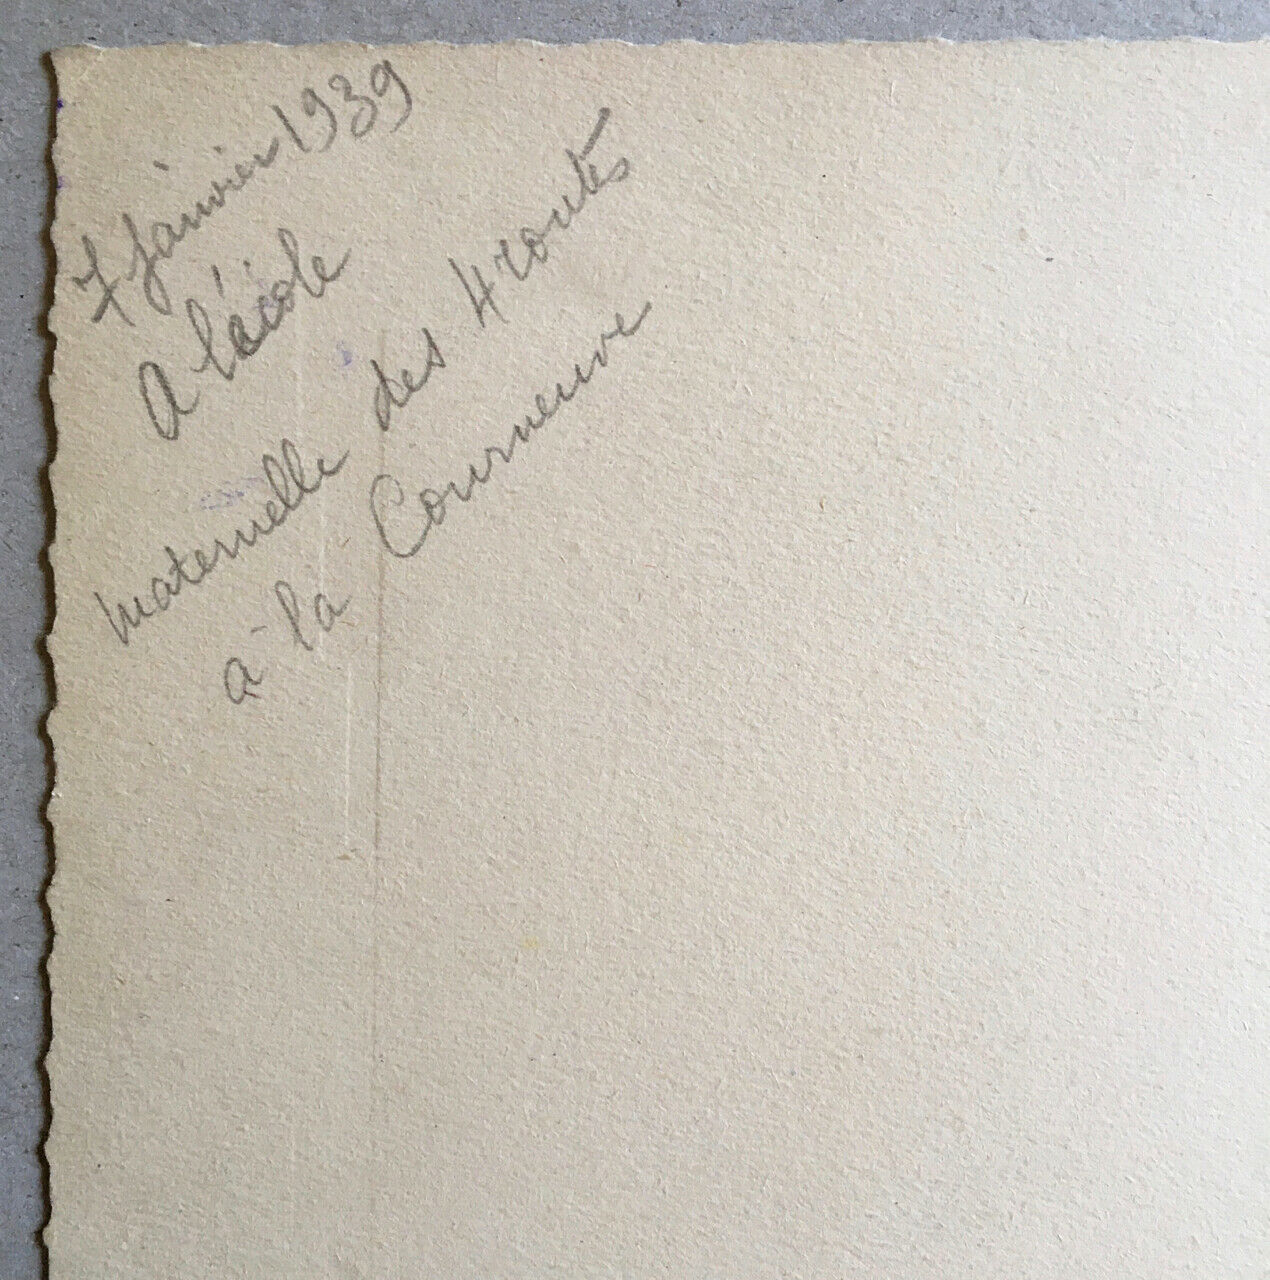 7 janvier 1939
A l'école
maternelle des 4 routes
à la Courneuve